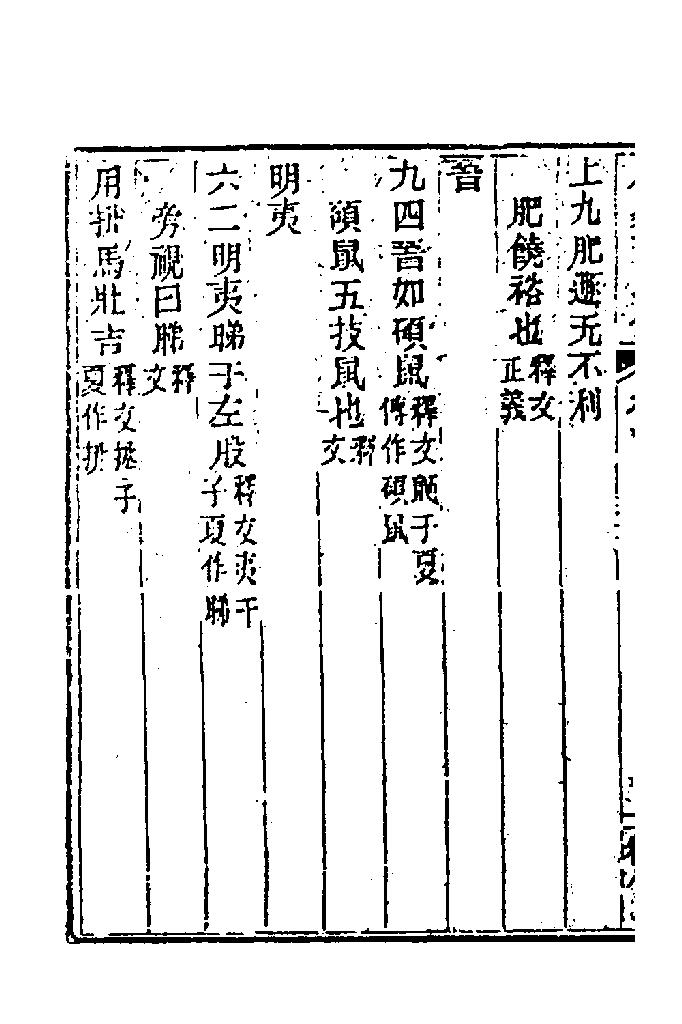 上九肥遯无不利
肥饒裕也釋文正義
晉
九四晉如碩鼠釋文鼫子夏傳作碩鼠
碩鼠五技鼠也釋文
明夷
六二明夷睇于左股釋文夷于子夏作睇
旁視曰睇釋文
用拯馬壯吉釋文拯子夏作抍